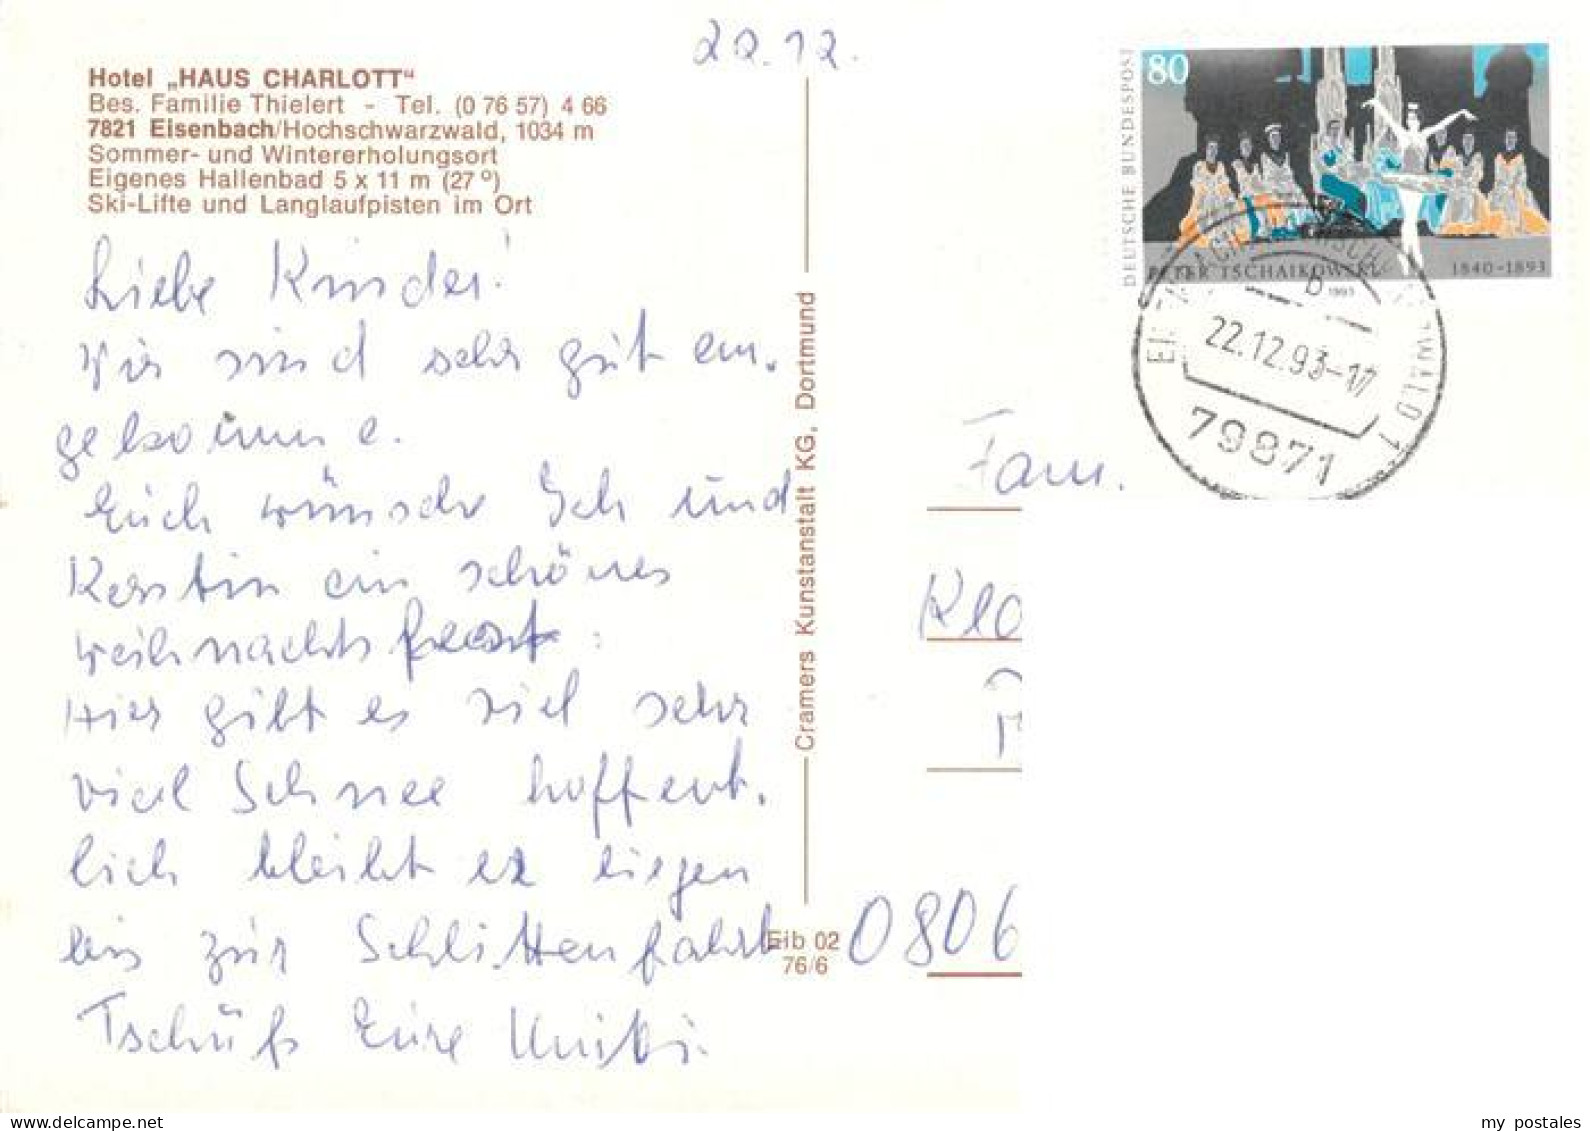 22.12.
Hotel „HAUS CHARLOTT"
Bes. Familie Thielert - Tel. (0 76 57) 4 66
7821 Eisenbach/Hochschwarzwald, 1034 m
Sommer- und Wintererholungsort
Eigenes Hallenbad 5 x 11 m (27 º)
Ski-Lifte und Langlaufpisten im Ort
Liebe Kinder!
Wir sind sehr gut an.
gekomme.
Euch wünsche Ich und
Kerstin ein schönes
Weihnachtsfest.
Hier gibt es viel sehr
viel Schnee hoffent.
lich bleibt er liegen
bis zur Schlittenfahrt
Tschüß Eure
Cramers Kunstanstalt KG, Dortmund
Eib 02
76/6
80
DEUTSCHE BUNDESPOST
PETER TSCHAIKOWSKI 1840-1893
1993
b
22.12.93-17
79871
Fam.
Kla
0806
my postales